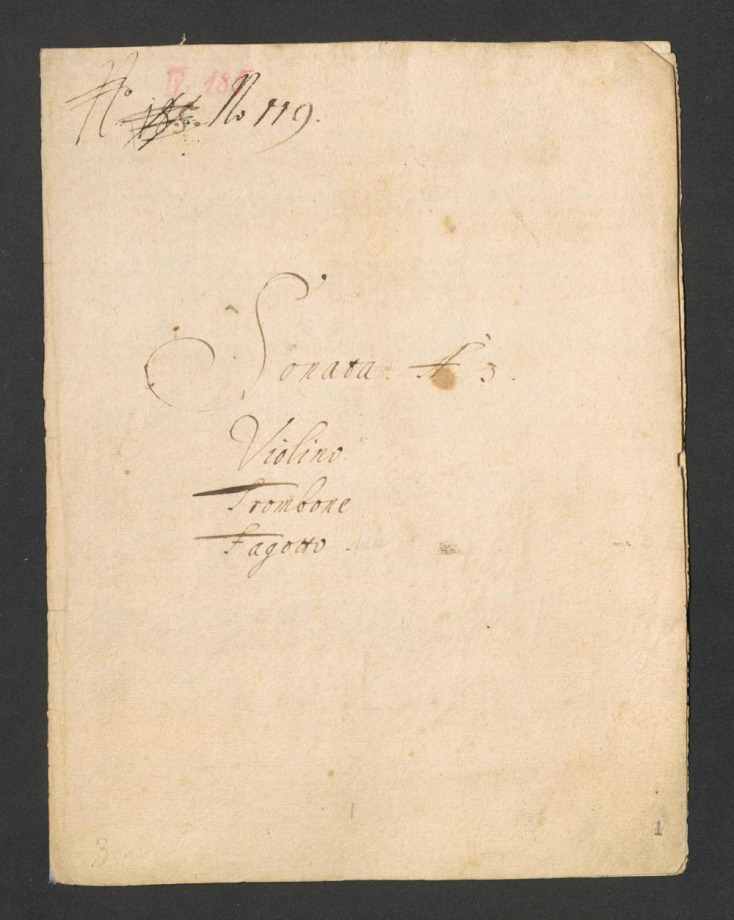 IV. 18
No. No 119.
Sonata. A 3.
Violino
Trombone
Fagotto.
3
1